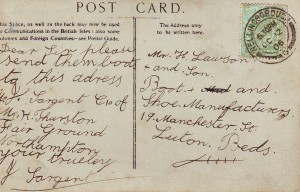 POST CARD.
This Space, as well as the back may now be used
for Communications in the British Isles: also some
Colonies and Foreign Countries—see Postal Guide.
The Address only
to be written here.
Dear Sir please
send them boots
to this adress
J. Sargent C/o of
Mr. H. Thurston
Fair Ground
Northampton
your trueley
J Sargent
Mr. H. Lawson
and Son
Boot and
Shoe Manufacturers
19. Manchester St.
Luton.
Beds.
WELLINGBOROUGH